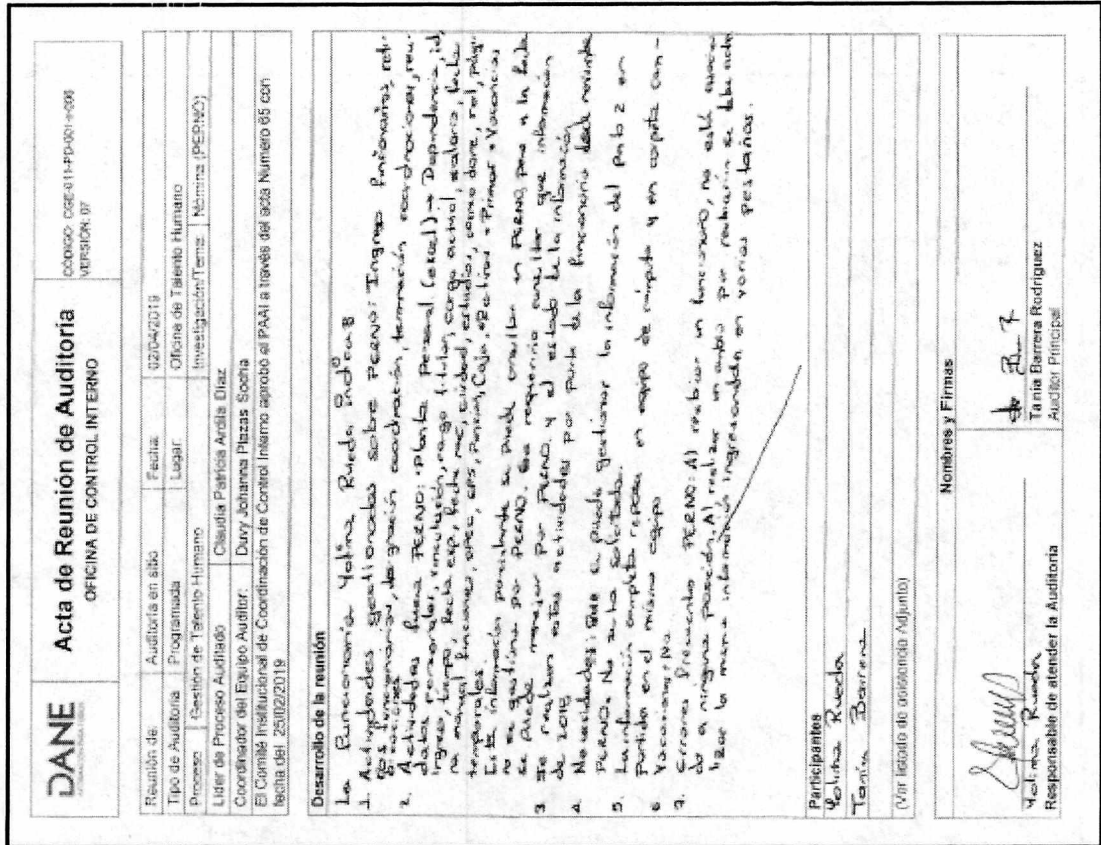 DANE
Acta de Reunión de Auditoría
OFICINA DE CONTROL INTERNO
CÓDIGO: CGE-011-PD-001-r-005
VERSIÓN: 07
Reunión de: Auditoría en sitio Fecha: 02/04/2019
Tipo de Auditoría Programada Lugar: Oficina de Talento Humano
Proceso Gestión de Talento Humano Investigación/Tema: Nómina (PERNO)
Lider de Proceso Auditado Claudia Patricia Ardila Díaz
Coordinador del Equipo Auditor: Duvy Johanna Plazas Socha
El Comité Institucional de Coordinación de Control Interno aprobó el PAAI a través del acta Numero 65 con
fecha del 25/02/2019
Desarrollo de la reunión
La funcionaria Yolima Rueda indica
1. Actividades gestionadas sobre PERNO: Ingreso funcionarios, reti-
ros funcionarios, asignación coordinación, terminación coordinaciones,
2. Actividades fuera PERNO: Planta personal (excel) → Dependencia, id,
datos personales, vinculación, cargo titular, cargo actual, salario, fecha
ingreso, tiempo, fecha exp, fecha nac, ciudad, estudios, correo,
manual funciones, opec, eps, pensión, Caja,
temporales.
Esta información parcialmente se puede consultar en PERNO, pero a la fecha
no se gestiona por PERNO. Sea requerido consultar que información
se puede manejar por PERNO y el estado de la información
3. Se realizan estas actividades por parte de la funcionaria desde noviembre
de 2018
4. Necesidades: Que se pueda gestionar la información del punto 2 en
PERNO. No se ha solicitado.
5. La información completa reposa en equipo de cómputo y en carpeta com-
partida en el mismo equipo
6. Vacaciones: No
7. Errores frecuentes PERNO: Al reubicar un funcionario, no está
do a ninguna posición. Al realizar un cambio por reubicación se debe
lizar la misma información ingresandola en varias pestañas.
Participantes
Yolima Rueda
Tania Barrera
(Ver listado de asistencia Adjunto)
Nombres y Firmas
Yolima Rueda
Responsable de atender la Auditoria
Tania Barrera Rodríguez
Auditor Principal